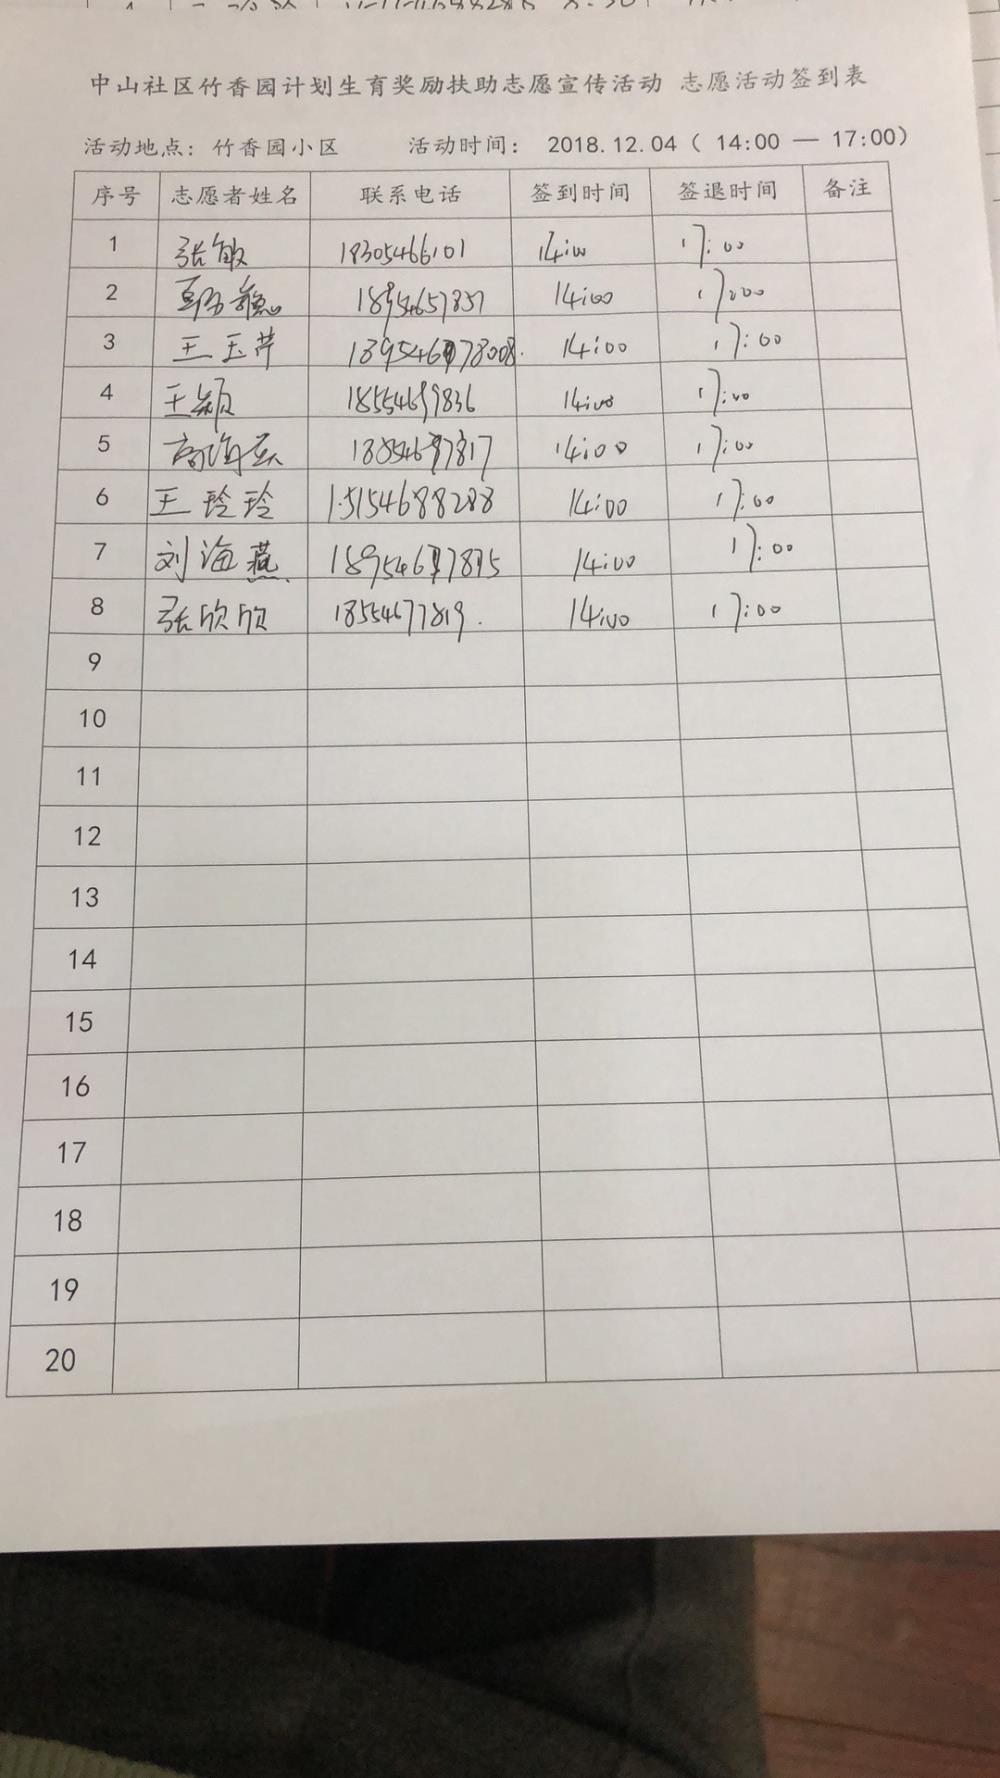 中山社区竹香园计划生育奖励扶助志愿宣传活动 志愿活动签到表
活动地点：竹香园小区 活动时间： 2018.12.04（ 14:00 — 17:00）
序号 志愿者姓名 联系电话 签到时间 签退时间 备注
1 张敏 18305466101 14:00 17:00
2 18954657857 14:00 17:00
3 王玉芹 14:00 17:00
4 王颖 18554699836 14:00 17:00
5 14:00 17:00
6 王玲玲 15154688288 14:00 17:00
7 刘海燕 14:00 17:00
8 张欣欣 18554677819. 14:00 17:00
9
10
11
12
13
14
15
16
17
18
19
20